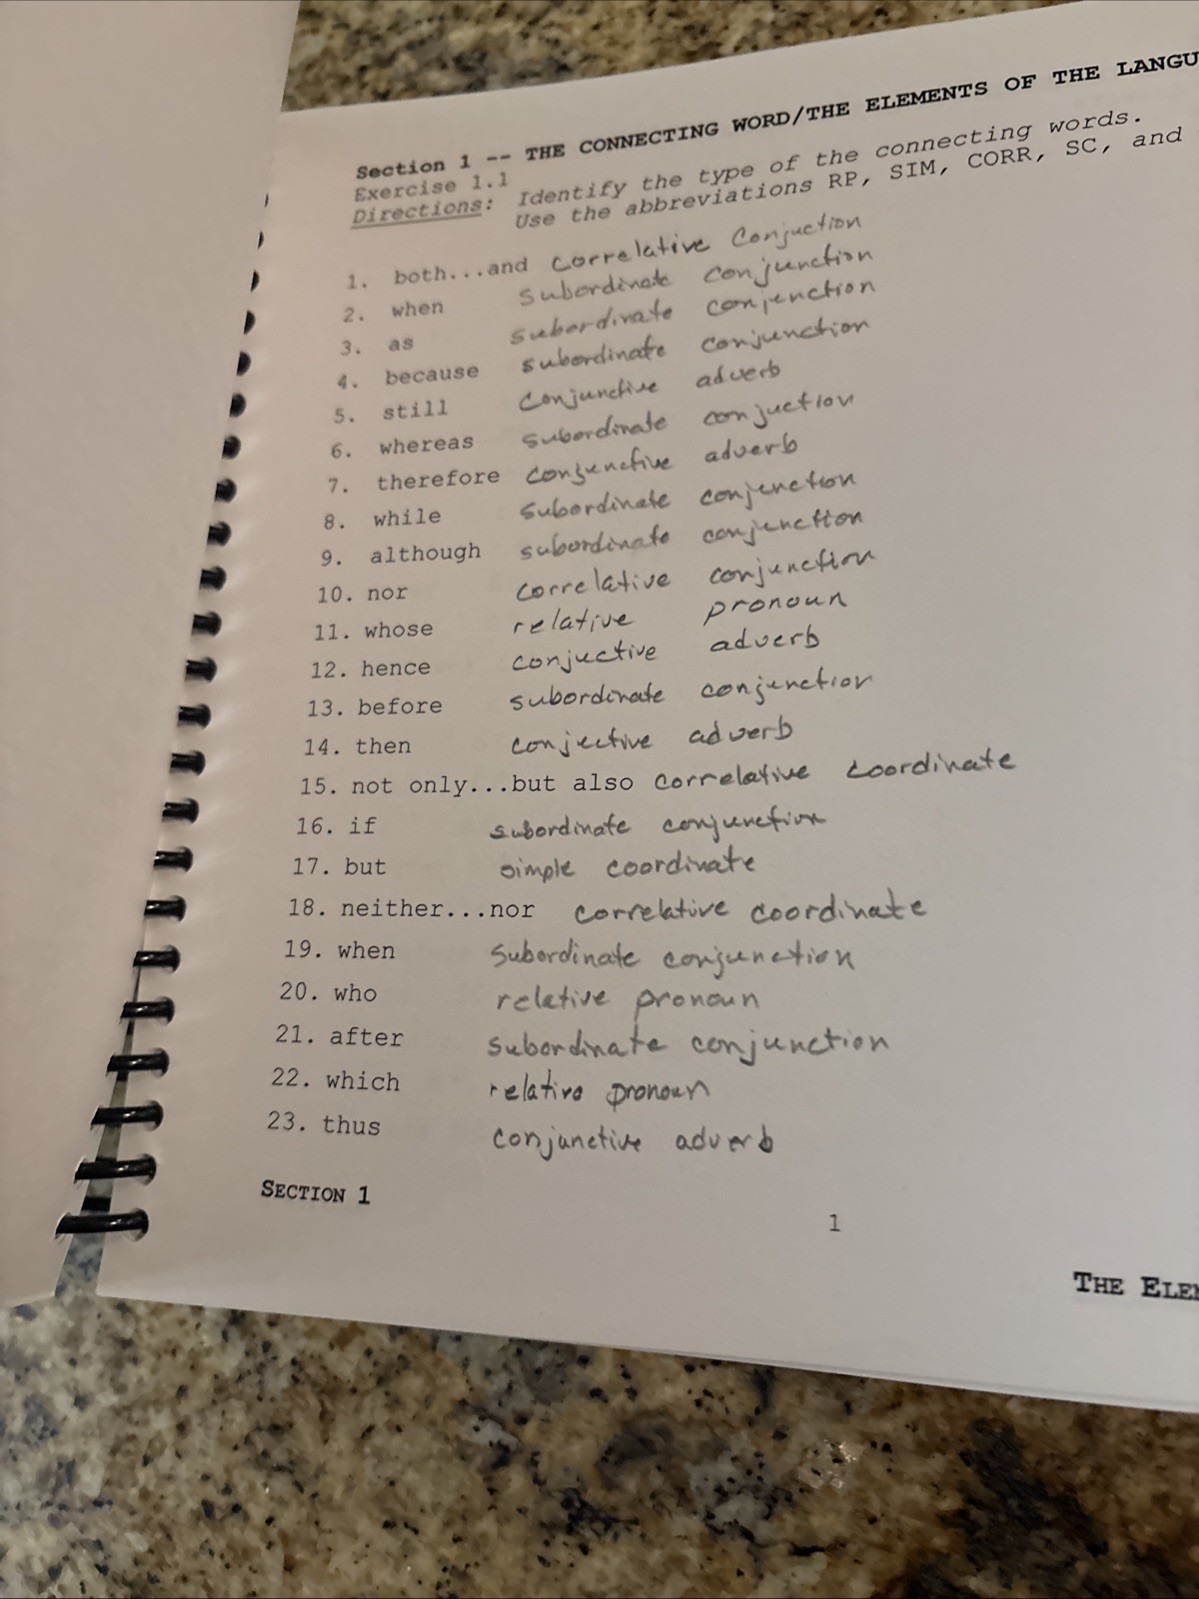 Section 1 -- THE CONNECTING WORD/THE ELEMENTS OF THE LANGU
Exercise 1.1
Directions: Identify the type of the connecting words.
Use the abbreviations RP, SIM, CORR, SC, and
1. both...and correlative Conjuction
2. when subordinate conjunction
3. as subordinate conjenction
4. because subordinate conjunction
5. still Conjunctive adverb
6. whereas subordinate conjuction
7. therefore conjunctive adverb
8. while subordinate conjenction
9. although subordinate conjunction
10. nor correlative conjunction
11. whose relative pronoun
12. hence conjuctive adverb
13. before subordinate conjunction
14. then conjective adverb
15. not only...but also correlative coordinate
16. if subordinate conjunction
17. but simple coordinate
18. neither...nor correlative coordinate
19. when subordinate conjunction
20. who relative pronoun
21. after subordinate conjunction
22. which relative pronoun
23. thus conjunctive adverb
SECTION 1
1
THE ELEM